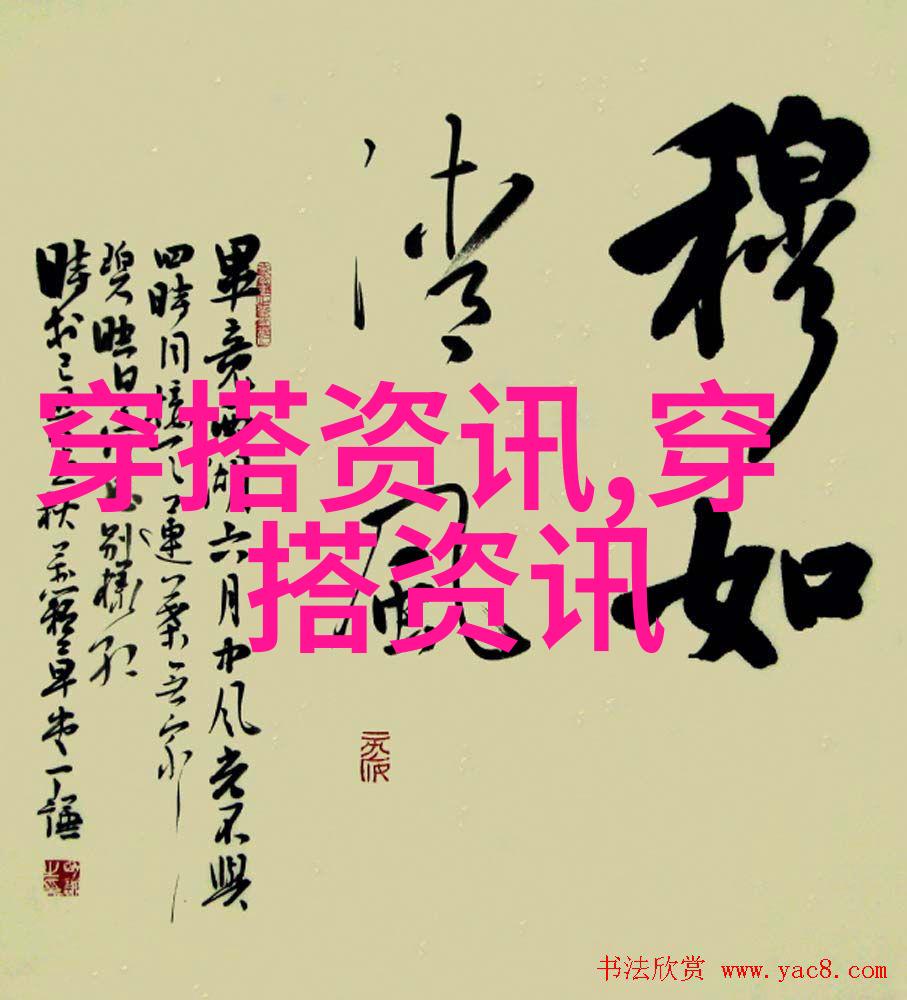 穆如
清風
畢竟西湖六月中风光不與
四時同接天蓮葉无穷
碧映日荷花别樣红
穿搭资讯,穿
搭资讯
书法欣赏 www.yac8.com